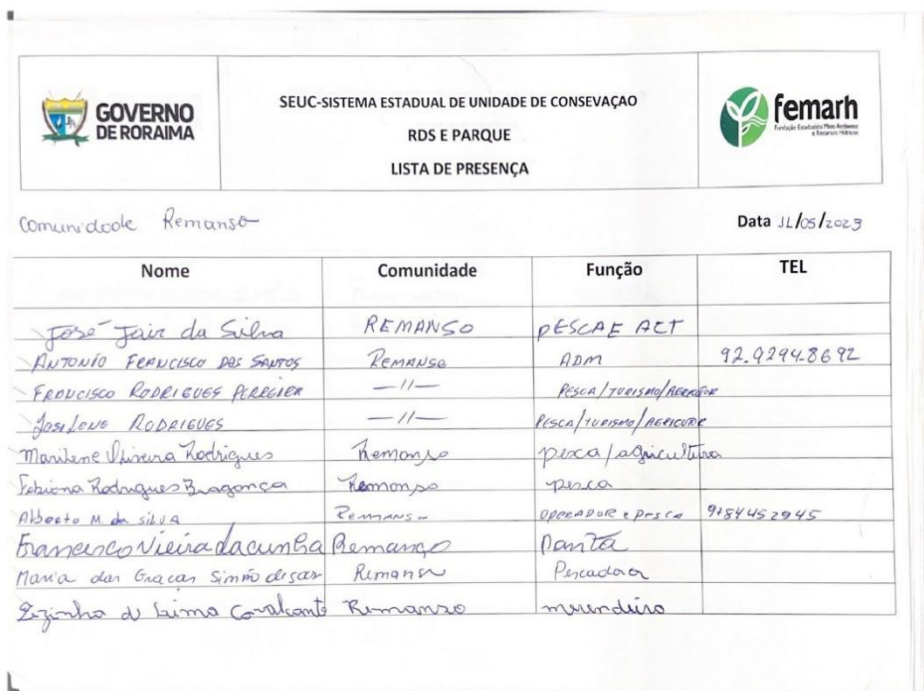 GOVERNO
DE RORAIMA
SEUC-SISTEMA ESTADUAL DE UNIDADE DE CONSEVAÇAO
RDS E PARQUE
LISTA DE PRESENÇA
femarh
Fundação Estadual do Meio Ambiente
e Recursos Hídricos
Comunidade Remanso
Data 11/05/2023
Nome Comunidade Função TEL
José Jair da Silva REMANSO PESCA E ACT
ANTONIO FRANCISCO DOS SANTOS REMANSO ADM 92.9294.8692
FRANCISCO RODRIGUES PERREIRA —//— PESCA/TURISMO/
JOSILENE RODRIGUES —//— PESCA/TURISMO/
Marilene Oliveira Rodrigues Remanso pesca/agricultura
Fabiana Rodrigues Bragança Remanso pesca
Alberto M. da silva REMANSO OPERADOR e PESCA 9784452945
Francisco Vieira da cunha Remanço
Maria das Graças Simão Remanso Pescadora
de Lima Cavalcante Remanso merendeiro